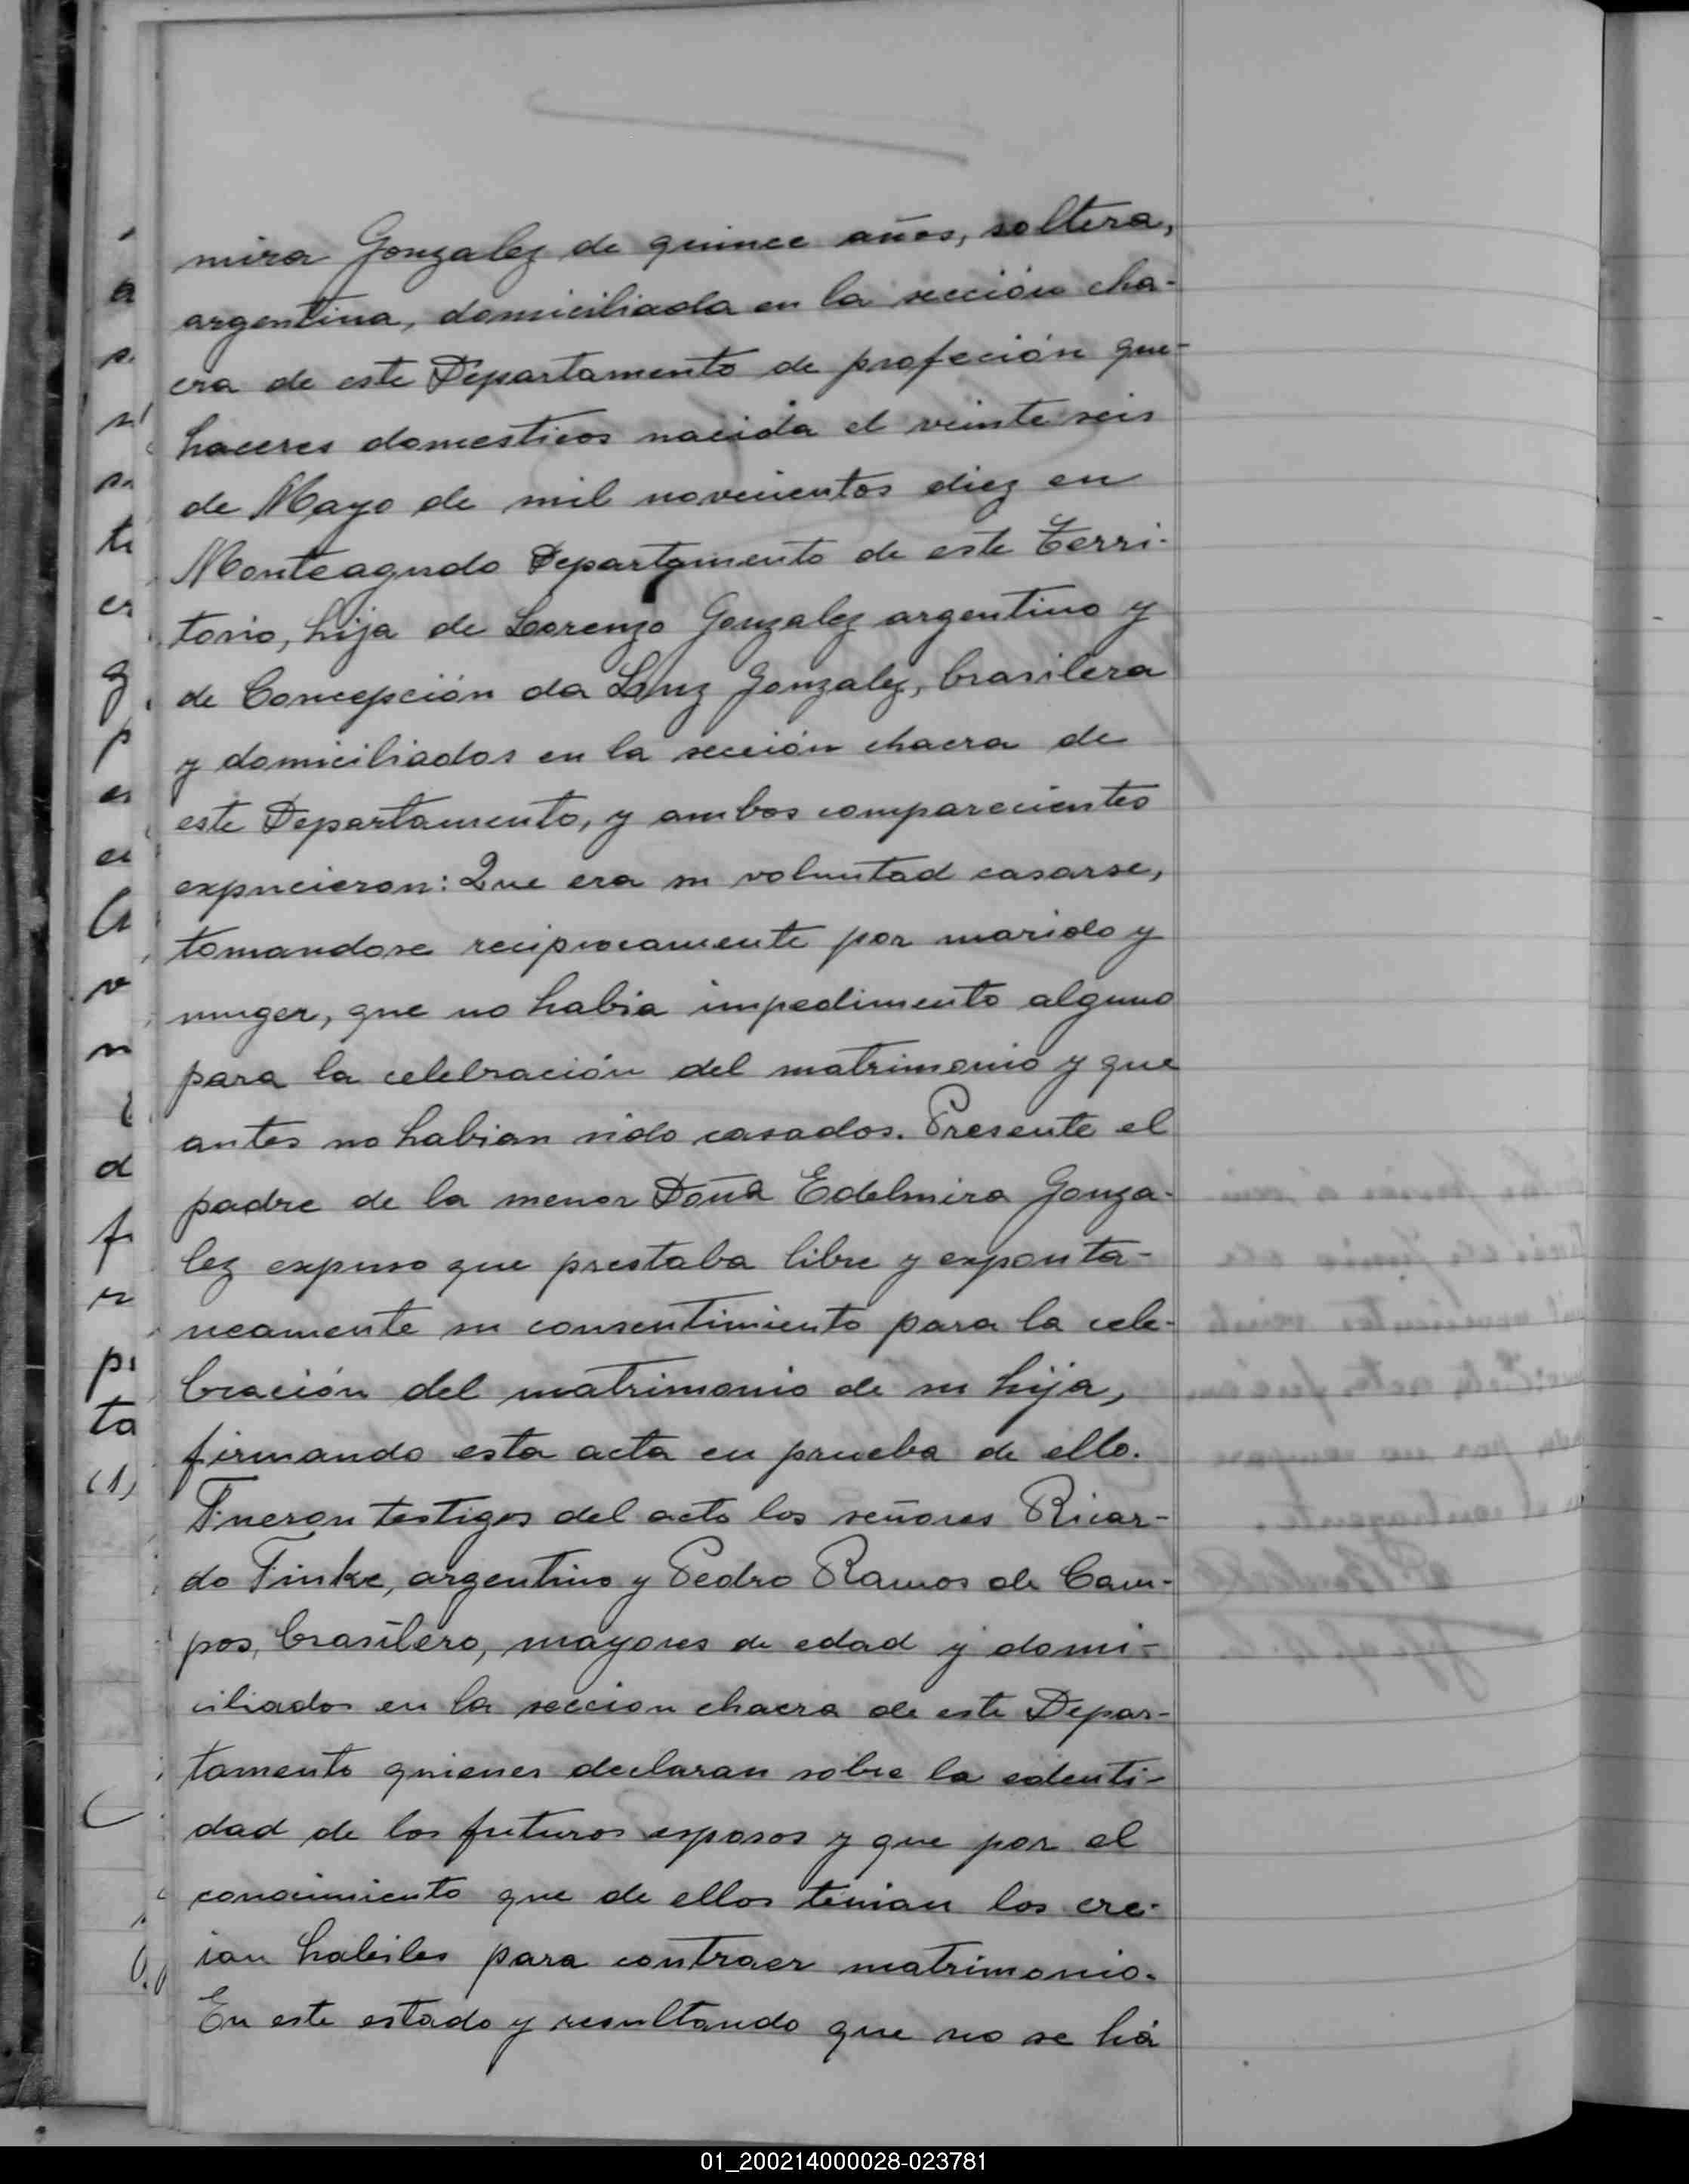 mira Gonzalez de quince años, soltera,
argentina, domiciliada en la sección cha-
cra de este Departamento de profeción que-
haceres domesticos nacida el veinte seis
de Mayo de mil novecientos diez en
Monteagudo Departamento de este Terri-
torio, hija de Lorenzo Gonzalez argentino y
de Concepción da Gonzalez, brasilera
y domiciliados en la sección chacra de
este Departamento, y ambos comparecientes
expucieron: Que era su voluntad casarse,
tomandose reciprocamente por marido y
muger, que no habia impedimento alguno
para la celebración del matrimonio y que
antes no habian sido casados. Presente el
padre de la menor Doña Edelmira Gonza-
lez expuso que prestaba libre y exponta-
neamente su consentimiento para la cele-
bración del matrimonio de su hija,
firmando esta acta en prueba de ello.
Fueron testigos del acto los señores Ricar-
do Finke, argentino y Pedro Ramos de Cam-
pos, brasilero, mayores de edad y domi-
ciliados en la seccion chacra de este Depar-
tamento quienes declaran sobre la edenti-
dad de los futuros esposos y que por el
conocimiento que de ellos tenian los cre-
ian habiles para contraer matrimonio.
En este estado y resultando que no se há
01_200214000028-023781